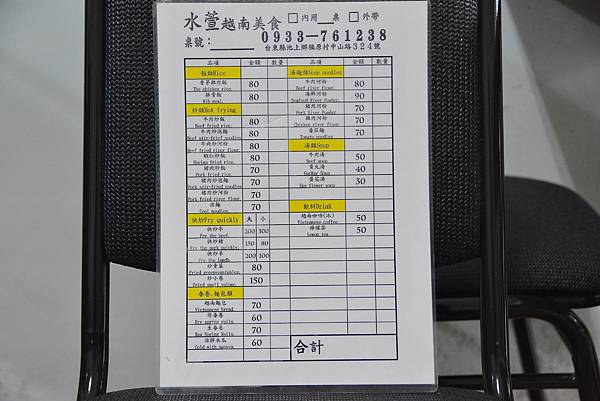 水萱越南美食 □內用 桌 □外帶
桌號: 0933-761238
台東縣池上鄉福原村中山路324號
品項 金額 數量 品項 金額 數量
飯類Rice
香茅雞肉飯 80
The chicken rice.
排骨飯 80
Rib meal.
炒類Hot frying
牛肉炒飯 80
Beef fried rice.
牛肉炒泡麵 80
Beef stir-fried noodles
牛肉炒河粉 80
Beef fried river flour.
蝦仁炒飯 80
Shrimp fried rice.
豬肉炒飯 70
Pork fried rice.
豬肉炒泡麵 70
Pork stir-fried noodles
豬肉炒河粉 70
Pork fried river flour.
涼麵 70
Cool noodles.
快炒Fry quickly 大 小
快炒牛 200 100
Fry the beef.
快炒豬 150 80
Fry the pork quickly.
快炒羊 200 100
Fry the lamb.
炒青菜 80
炒小卷 150
春卷.麵包類
越南麵包 70
Vietnamese bread.
炸春卷 60
生春卷 70
Raw Spring Rolls.
涼拌木瓜 60
Cold with papaya.
湯麵類Soup noodles
牛肉河粉 80
Beef river flour.
海鮮河粉 90
Seafood River Powder.
豬肉河粉 70
Pork River Powder
雞肉河粉 70
Chicken river flour
番茄麵 70
Tomato noodles
湯類Soup
牛肉湯 50
Beef soup
貢丸湯 40
蛋花湯 30
Egg flower soup
飲料Drink
越南咖啡(冰) 50
Vietnamese coffee
檸檬茶 50
Lemon tea
合計